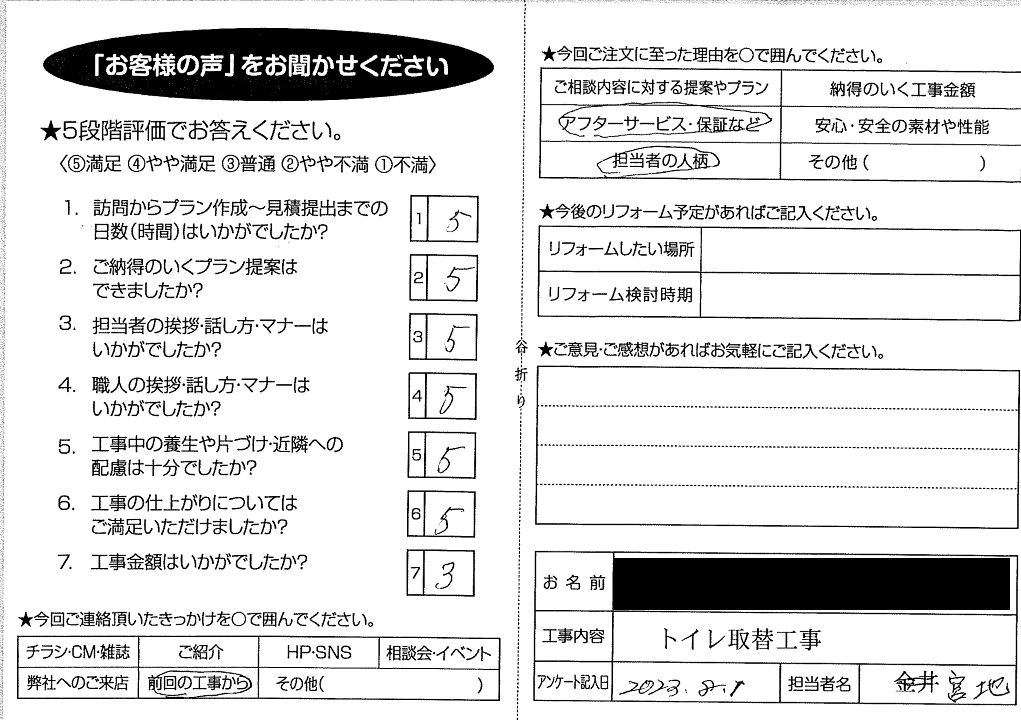 「お客様の声」をお聞かせください
★5段階評価でお答えください。
〈⑤満足 ④やや満足 ③普通 ②やや不満 ①不満〉
1. 訪問からプラン作成～見積提出までの
日数(時間)はいかがでしたか?
1 5
2. ご納得のいくプラン提案は
できましたか?
2 5
3. 担当者の挨拶・話し方・マナーは
いかがでしたか?
3 5
4. 職人の挨拶・話し方・マナーは
いかがでしたか?
4 5
5. 工事中の養生や片づけ・近隣への
配慮は十分でしたか?
5 5
6. 工事の仕上がりについては
ご満足いただけましたか?
6 5
7. 工事金額はいかがでしたか?
7 3
★今回ご連絡頂いたきっかけを〇で囲んでください。
チラシ・CM・雑誌 ご紹介 HP・SNS 相談会・イベント
弊社へのご来店 前回の工事から その他( )
谷折り
★今回ご注文に至った理由を〇で囲んでください。
ご相談内容に対する提案やプラン 納得のいく工事金額
アフターサービス・保証など 安心・安全の素材や性能
担当者の人柄 その他( )
★今後のリフォーム予定があればご記入ください。
リフォームしたい場所
リフォーム検討時期
★ご意見・ご感想があればお気軽にご記入ください。
お名前
工事内容 トイレ取替工事
アンケート記入日 2023.8.1 担当者名 金井 宮地